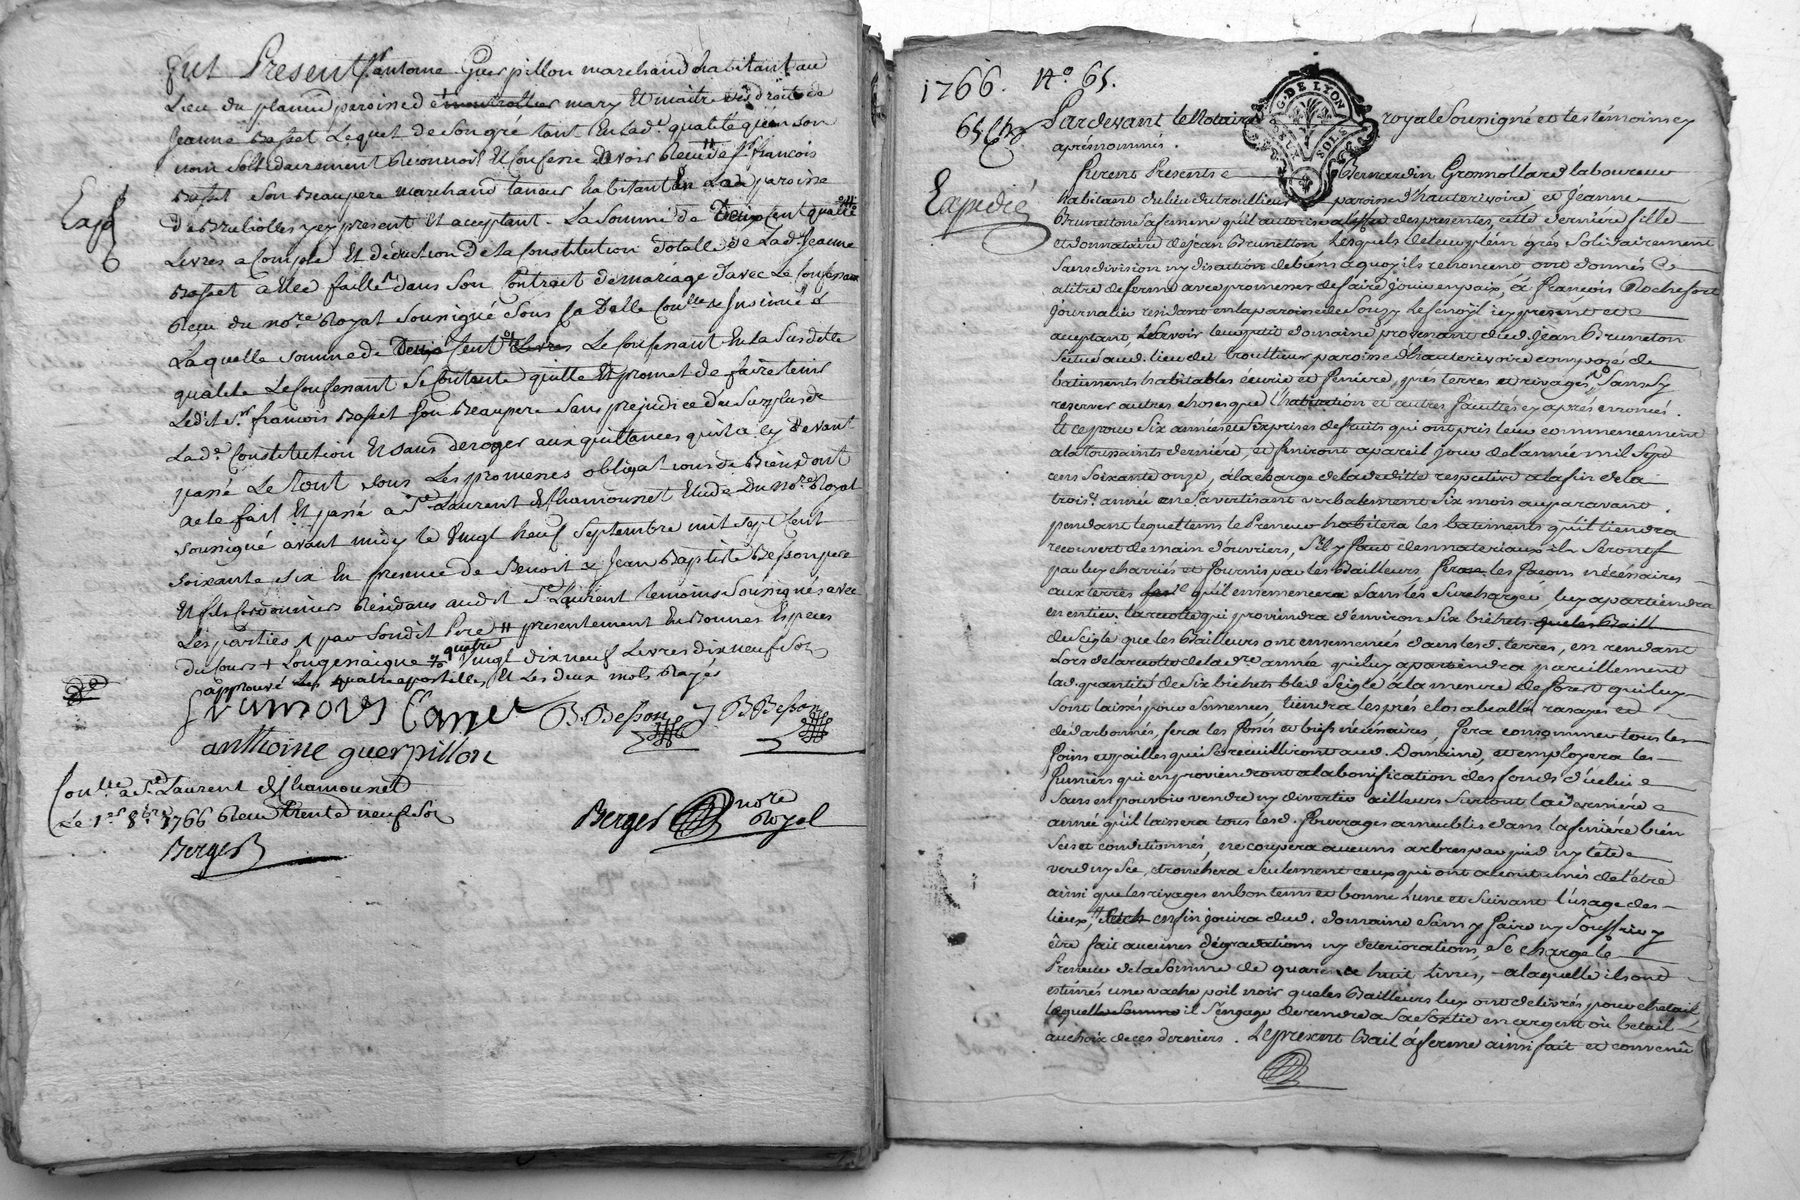 fut Present Sr. antoine Guerpillon marchand habitant au
Lieu du planin paroisse de montrottier mary Et maitre des droits de
Jeanne Basset Lequel de Son gré tant En lad.e qualité qu'en son
nom Solidairement Reconnoit Et Confesse avoir Receu de Sr. francois
Basset Son Beaupere marchand taneur habitant En La paroisse
de Brulliolles y cy present Et acceptant. La Somme de Deux Cent quatre
Livres a Compte Et deduction de la Constitution dotalle de Lad.e Jeanne
Basset a Elle faitte dans Son Contrat de mariage d'avec Le Confessant
Receu du no.re Royal Sousigné Sous Sa Datte Con.llé & Insinué
Laquelle somme de Deux Cent Livres Le Confessant En la Susdette
qualité Le Confessant Se Contente quitte Et promet de faire tenir
Ledit Sr. francois Basset Son Beaupere Sans prejudice du Surplus de
Lad.e Constitution Et sans deroger aux quittances qu'il a cy Devant
passé Le Tout sous Les promesses obligations de Biens dont
acte fait Et passé a St. Laurent de Chamousset Etude du No.re Royal
Sousigné avant midy le Vingt neuf Septembre mil sept Cent
Soixante Six En presence de Benoit & Jean Baptiste Besson pere
Et fils Cordonniers Residans audit St. Laurent temoins Sousignés avec
Les parties par Sondit Pere presentement En Bonnes Especes
du Cours + quatre Vingt dix neuf Livres dix neuf Sols
approuvé Les quatre apostilles Et Les deux mots Rayés
B. Besson J B Besson
anthoine guerpillon
Con.llé a St. Laurent de Chamousset
Le 1.er 8.bre 1766 Receu trente neuf Sols
Berger
Berger no.re Royal
1766. N.o 65.
G. DE LYON
DEUX SOLS
Pardevant le Notaire royal Sousigné et les témoins cy
aprés nommés.
Expedié
Furent Presents Bernardin Gronnollard laboureur
habitant du lieu du troullieur paroisse d'hauterivoire et Jeanne
Brunetton Sa femme qu'il autorise a l'effet des presentes, cette derniére fille
et donnataire de Jean Brunetton Lesquels de leur plein grés Solidairement
Sans division ny discution de biens a quoy ils renoncent ont donnés
a titre de ferme avec promesses de faire jouir en paix, à François Rochefort
journalier residant en la paroisse de Souzy cy present et
acceptant, Sçavoir leur petit domaine provenant dud. Jean Brunetton
Situé aud. lieu du troullieur paroisse d'hauterivoire composé de
batiments habitables écurie et feniére, prés terres et rivages, Sans Sy
reserver autres choses que l'habitation et autres facultés cy aprés énoncés.
Et ce pour Six années et Six prises de fruits qui ont pris leur commencement
a la toussaints derniére, et finiront a pareil jour de l'année mil Sept
cens Soixante onze, à la charge de la dedditte respective a la fin de la
trois.e année en S'avertisant verbalement Six mois auparavant.
pendant lequel tems le Preneur habitera les batiments qu'il tiendra
recouvert de main d'ouvriers, S'il y faut des materiaux ils Seront
par luy charriés et fournis par les Bailleurs fera les façons nécéssaires
aux terres qu'il ensemencera Sans les Surcharger, luy apartiendra
en entier la recolte qui proviendra d'environ Six bichets
de Seigle que les Bailleurs ont ensemencés dans lesd. terres, en rendant
Lors de la recolte de la d.re année qui luy apartiendra pareillement
lad. quantité de Six bichets bled Seigle a la mesure de forest qui luy
Sont laissés pour Semences, tiendra les prés clos abeallés rasagés et
dédarbonnés, fera les fossés et biefs nécéssaires, fera consommer tous les
foins et pailles qui Se recuilliront aud. Domaine, et employera les
fumiers qui en proviendront a la bonification des fonds d'icelui
Sans en pouvoir vendre ny divertir ailleurs Surtout la derniére
année qu'il laissera tous lesd. fourrages ameublis dans la feniére bien
Secs et conditionnés, ne coupera aucuns arbres par pied ny tête
verd ny Sec, étronchera Seulement ceux qui ont accoutumés de l'être
ainsi que les rivages en bon tems et bonne lune et Suivant l'usage des
lieux, enfin jouira dud. domaine Sans y faire ny Souffrir y
être fait aucunes dégradations ny deteriorations, Se charge le
Preneur de la Somme de quarante huit livres, a laquelle ils ont
estimés une vache poil noir que les Bailleurs luy ont delivrés pour chetail
laquelle Somme il S'engage de rendre a Sa Sortie en argent où betail
au choix de ces derniers. Le present Bail à ferme ainsi fait et convenû